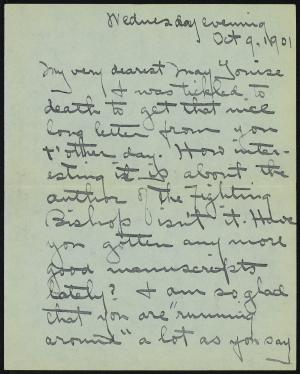 Wednesday evening
Oct 9. 1901
My very dearest May Louise
I was tickled to
death to get that nice
long letter from you
t'other day. How inter-
esting it is about the
author of the Fighting
Bishop isn't it. Have
you gotten any more
good manuscripts
lately? I am so glad
that you are "running
around" a lot as you say